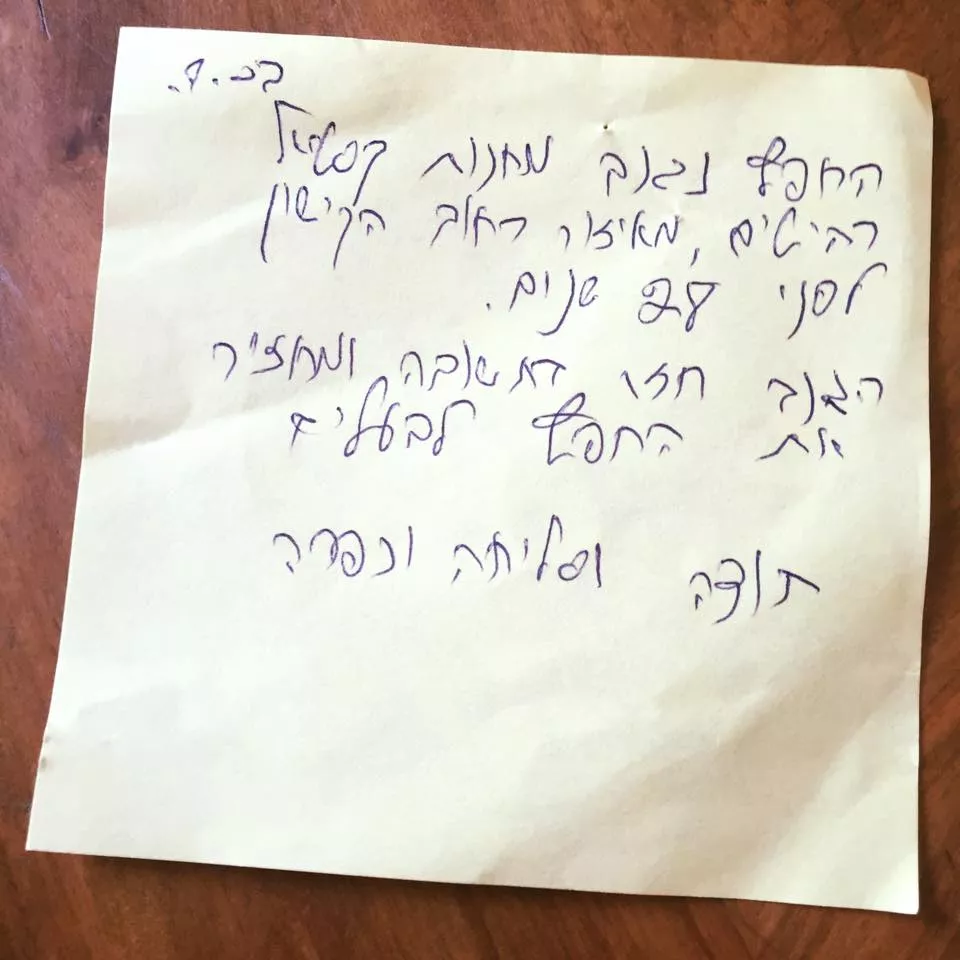 החפץ נגנב מחנות קסטיאל
רהיטים, מאיזור רחוב הקישון
לפני שנים.
הגנב חזר בתשובה ומחזיר
את החפץ לבעליו
תודה וסליחה וכפרה